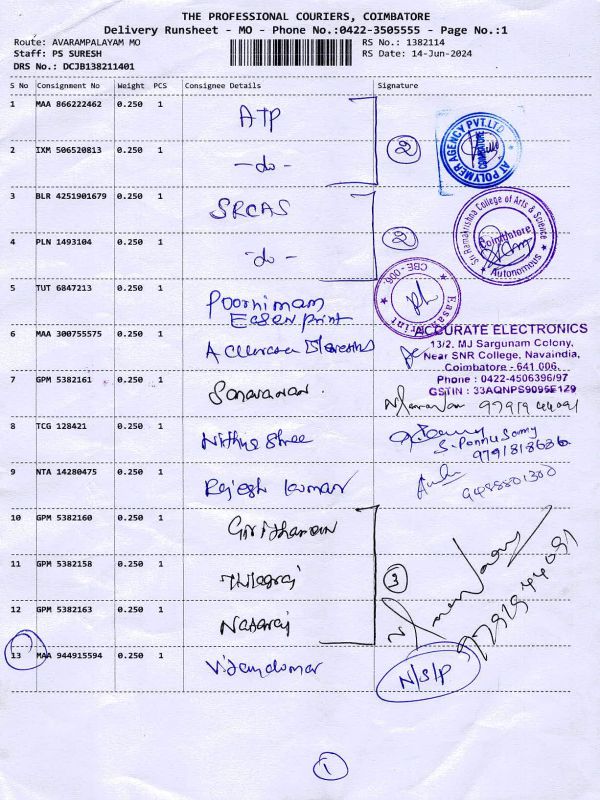 THE PROFESSIONAL COURIERS, COIMBATORE
Delivery Runsheet - MO - Phone No.:0422-3505555 - Page No.:1
Route: AVARAMPALAYAM MO
RS No.: 1382114
Staff: PS SURESH
RS Date: 14-Jun-2024
DRS No.: DCJB138211401
S No Consignment No Weight PCS Consignee Details Signature
1 MAA 866222462 0.250 1 ATP
2 IXM 506520813 0.250 1 -do-
2
AT POLYMER AGENCY PVT.LTD
3 BLR 4251901679 0.250 1 SRCAS
4 PLN 1493104 0.250 1 -do-
2
Sri Ramakrishna College of Arts & Science
Coimbatore
Autonomous
5 TUT 6847213 0.250 1 Poornimam
Easan print
Easan Print
CBE-006.
6 MAA 300755575 0.250 1
ACCURATE ELECTRONICS
13/2, MJ Sargunam Colony,
Near SNR College, Navaindia,
Coimbatore - 641 006.
Phone : 0422-4506396/97
GSTIN : 33AQNPS9095E1Z9
7 GPM 5382161 0.250 1 Saravanan. 9791944091
8 TCG 128421 0.250 1 Nithya Shree
S. Ponnu Samy
9791818686
9 NTA 14280475 0.250 1 Rajesh kumar
10 GPM 5382160 0.250 1
11 GPM 5382158 0.250 1 Thilagraj
3
12 GPM 5382163 0.250 1 Nataraj
9791944091
13 MAA 944915594 0.250 1 N/S/P
1